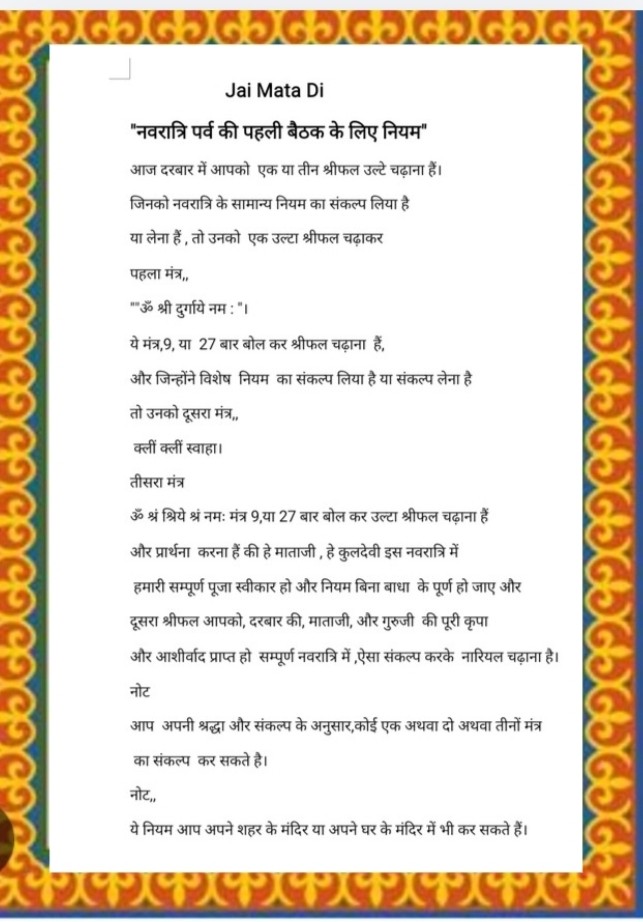 Jai Mata Di
"नवरात्रि पर्व की पहली बैठक के लिए नियम"
आज दरबार में आपको एक या तीन श्रीफल उल्टे चढ़ाना हैं।
जिनको नवरात्रि के सामान्य नियम का संकल्प लिया है
या लेना हैं , तो उनको एक उल्टा श्रीफल चढ़ाकर
पहला मंत्र,,
""ॐ श्री दुर्गाये नम : "।
ये मंत्र,9, या 27 बार बोल कर श्रीफल चढ़ाना हैं,
और जिन्होंने विशेष नियम का संकल्प लिया है या संकल्प लेना है
तो उनको दूसरा मंत्र,,
क्लीं क्लीं स्वाहा।
तीसरा मंत्र
ॐ श्रं श्रिये श्रं नमः मंत्र 9,या 27 बार बोल कर उल्टा श्रीफल चढ़ाना हैं
और प्रार्थना करना हैं की हे माताजी , हे कुलदेवी इस नवरात्रि में
हमारी सम्पूर्ण पूजा स्वीकार हो और नियम बिना बाधा के पूर्ण हो जाए और
दूसरा श्रीफल आपको, दरबार की, माताजी, और गुरुजी की पूरी कृपा
और आशीर्वाद प्राप्त हो सम्पूर्ण नवरात्रि में ,ऐसा संकल्प करके नारियल चढ़ाना है।
नोट
आप अपनी श्रद्धा और संकल्प के अनुसार,कोई एक अथवा दो अथवा तीनों मंत्र
का संकल्प कर सकते है।
नोट,,
ये नियम आप अपने शहर के मंदिर या अपने घर के मंदिर में भी कर सकते हैं।